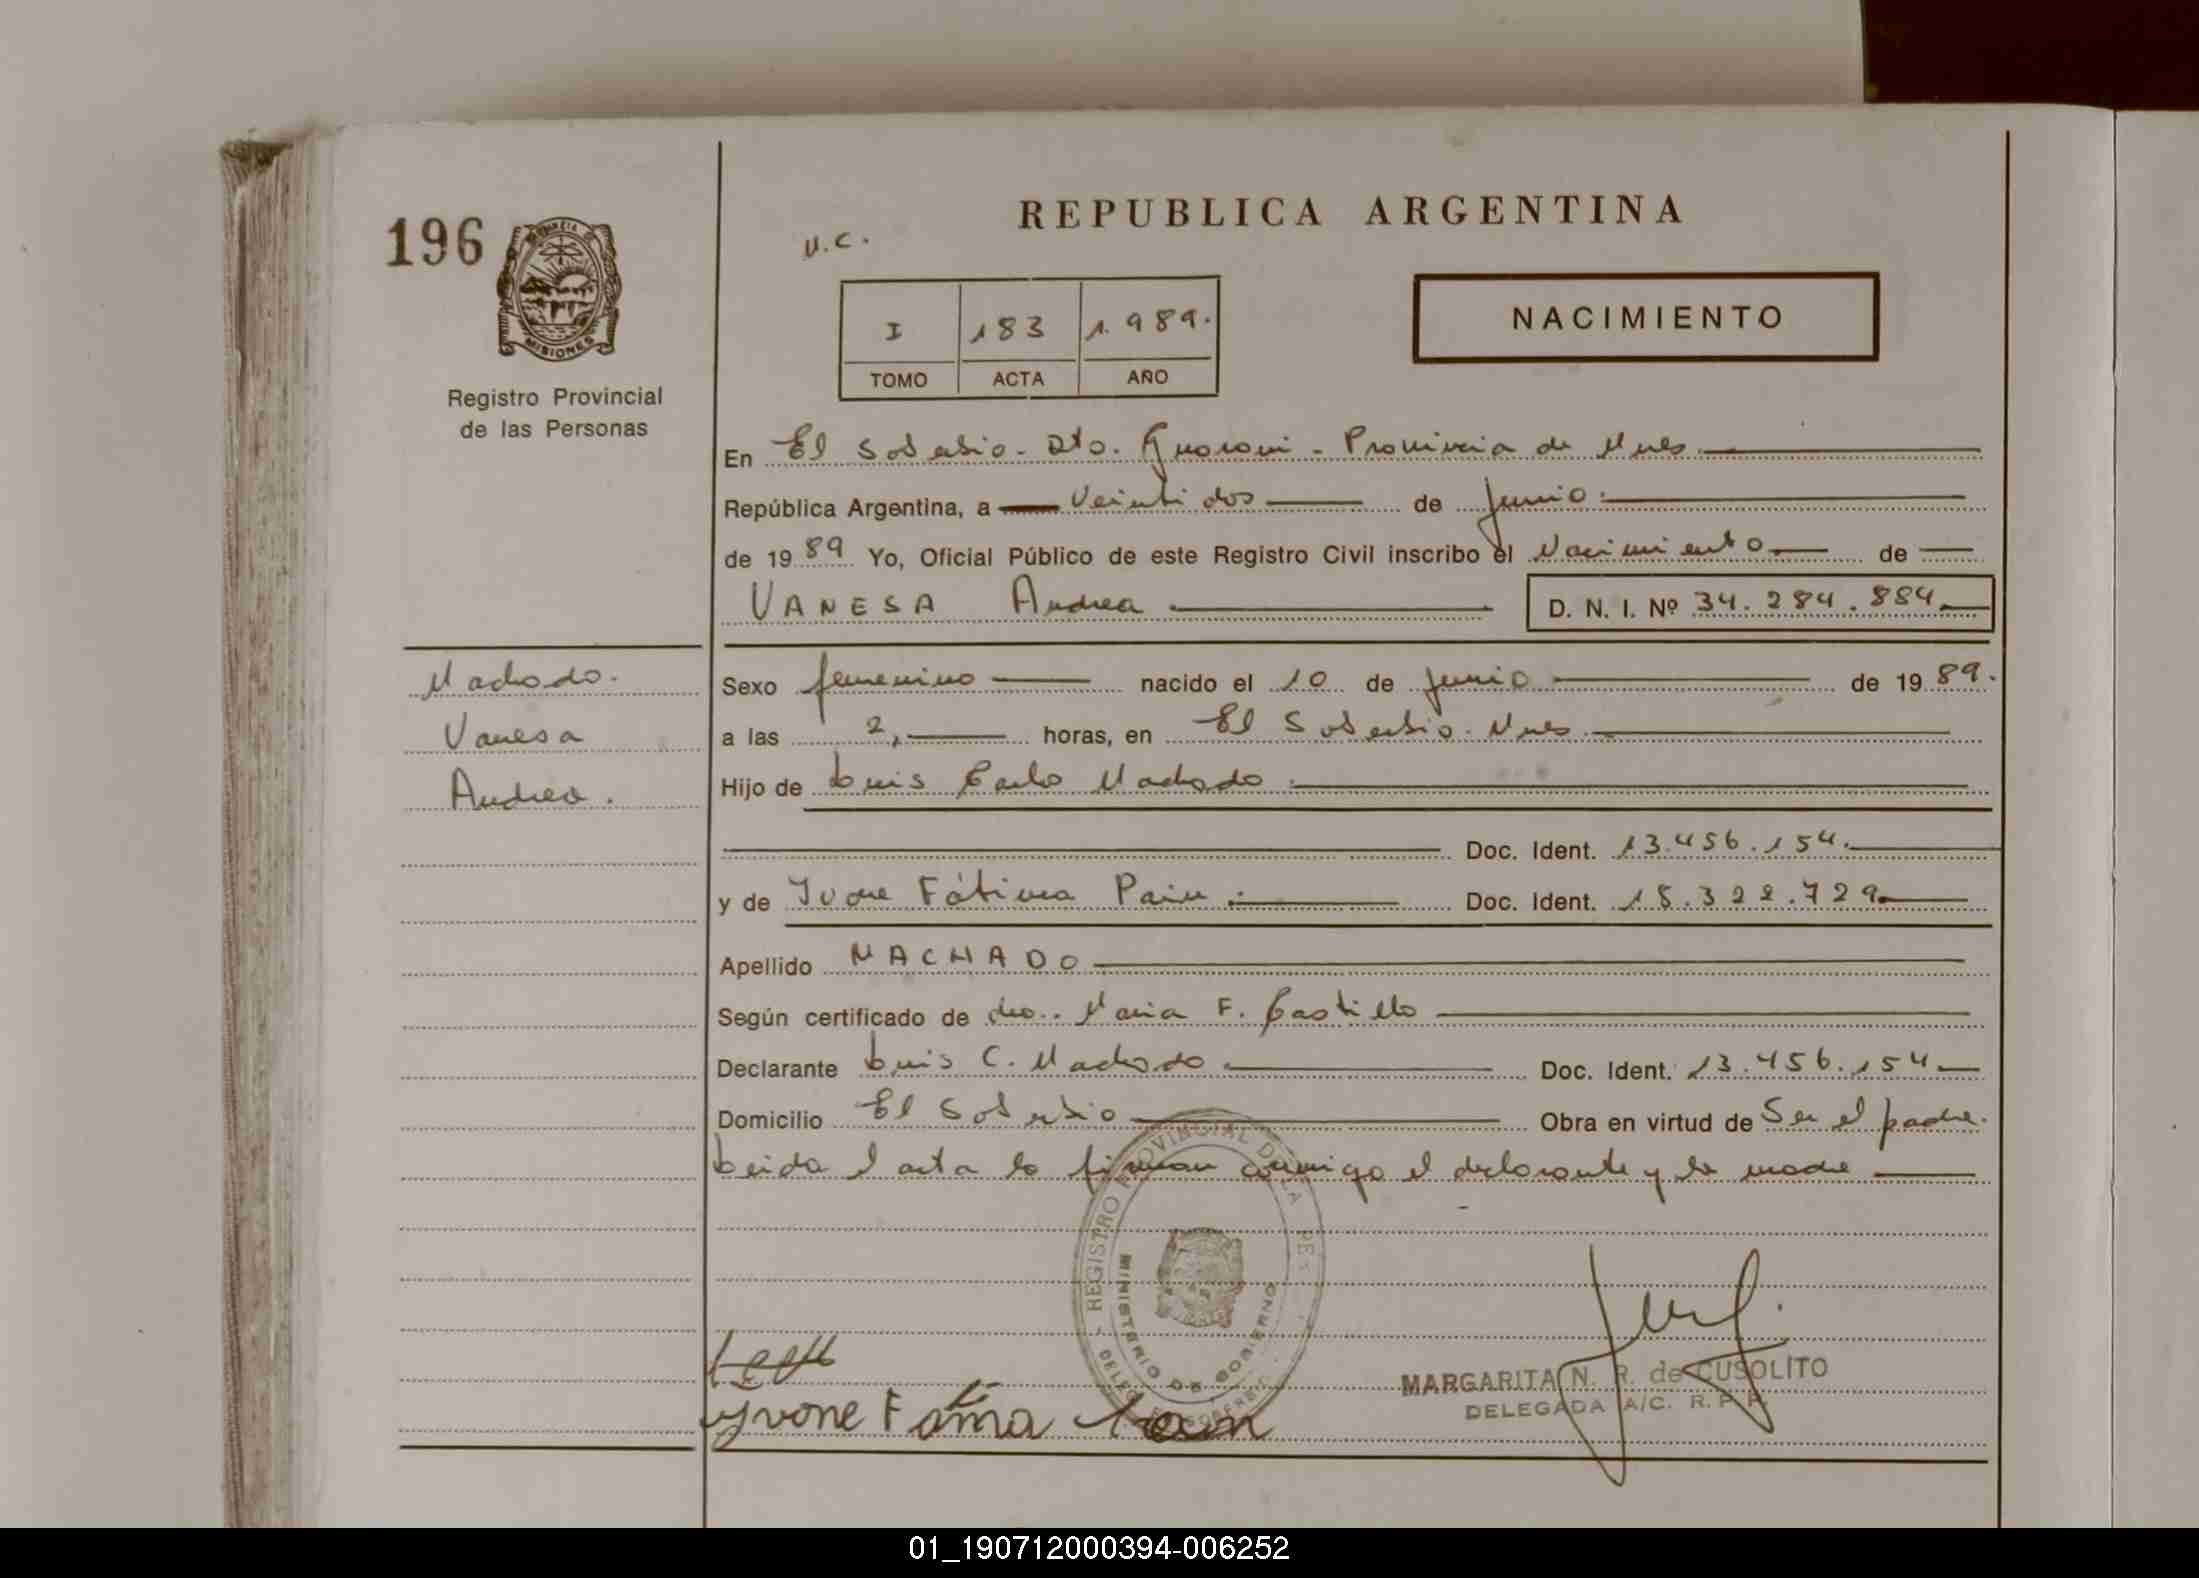 196
REPUBLICA ARGENTINA
PROVINCIA DE
MISIONES
Registro Provincial
de las Personas
N.C.
I 183 1.989.
TOMO ACTA AÑO
NACIMIENTO
En El Soberbio - Dto. Guaraní - Provincia de Mnes.
República Argentina, a Veintidos de Junio.
de 1989 Yo, Oficial Público de este Registro Civil inscribo el Nacimiento de
VANESA Andrea D. N. I. Nº 34.284.884
Machado.
Vanesa
Andrea.
Sexo femenino nacido el 10 de Junio de 1989.
a las 2, horas, en El Soberbio. Mnes.
Hijo de Luis Carlo Machado.
Doc. Ident. 13.456.154.
y de Ivone Fátima Pain. Doc. Ident. 18.322.729
Apellido MACHADO
Según certificado de dra. Maria F. Castillo
Declarante Luis C. Machado Doc. Ident. 13.456.154
Domicilio El Soberbio Obra en virtud de Ser el padre.
Leida el acta la firman conmigo el declarante y la madre
REGISTRO PROVINCIAL DE LA PE
MINISTERIO DE GOBIERNO
MARGARITA N. R. de CUSOLITO
DELEGADA A/C. R. P. P.
Yvone Fatima
01_190712000394-006252